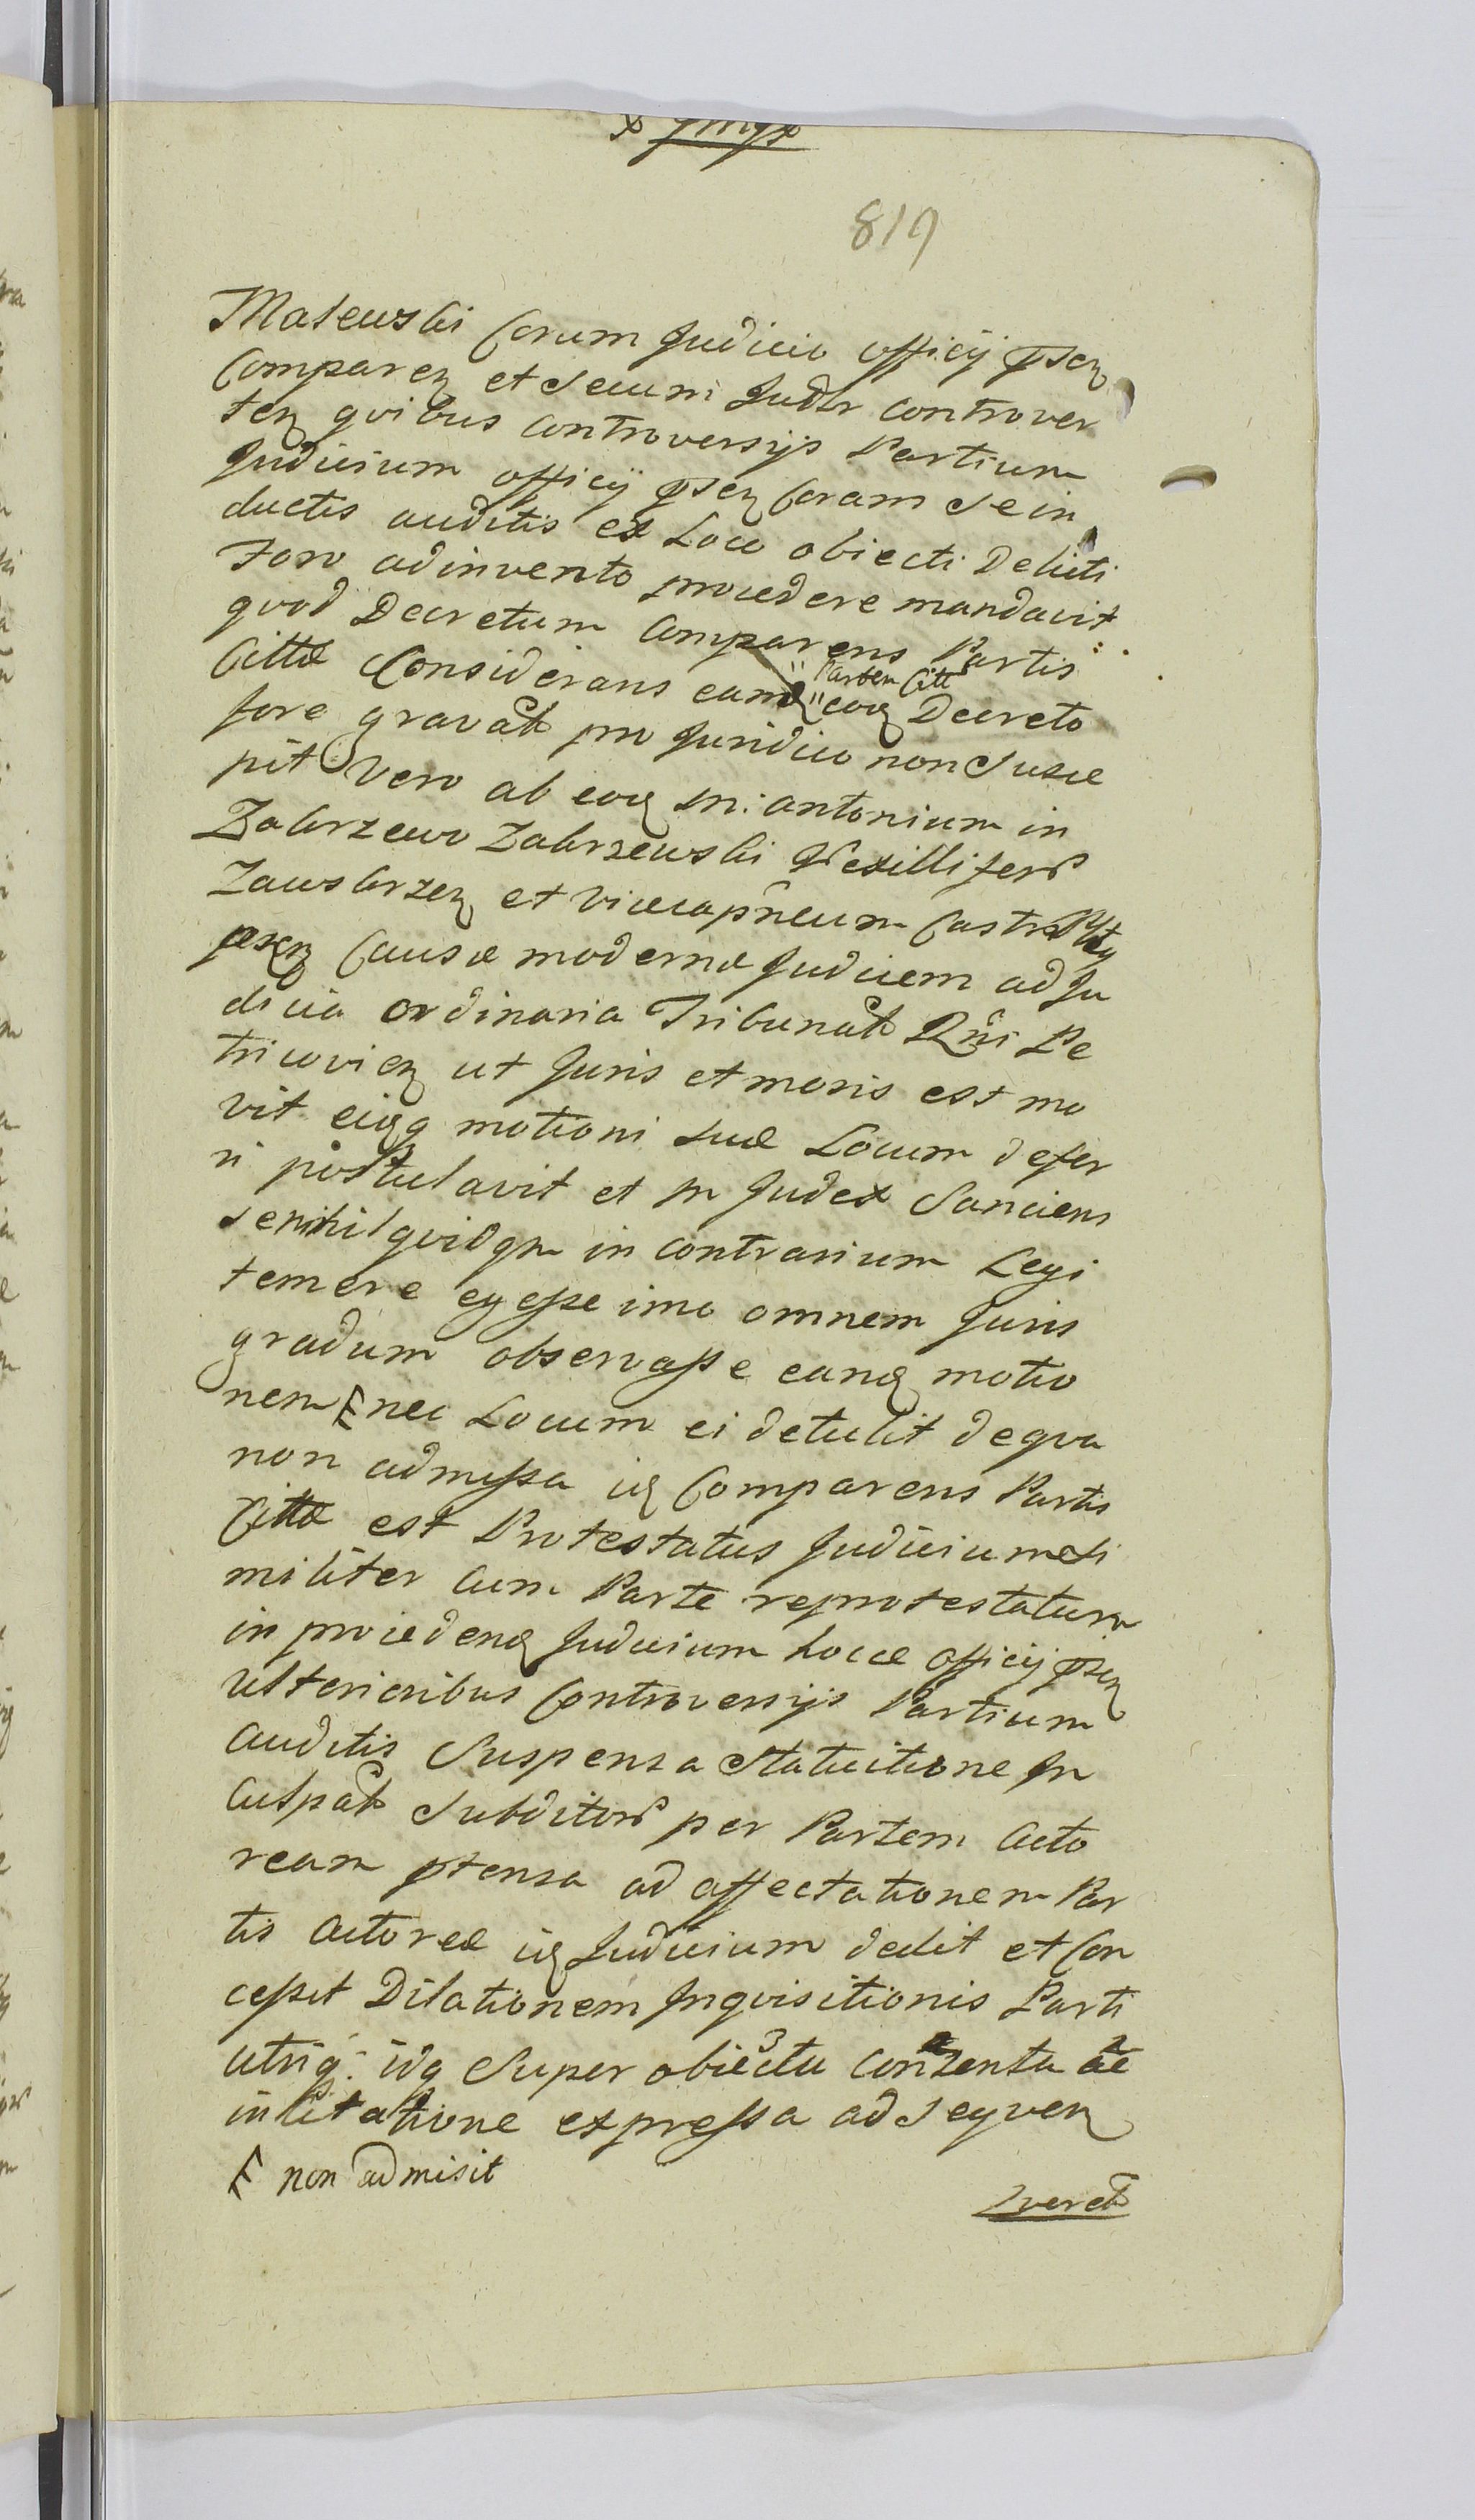 819
Matewski Corum Judicio officij psen
Comparen et Secum Judlr controver
ten qvibus controversijs Partium
Judicium officij psen Coram Se in
ductis auditis ex Loco obiecti Delicti
Foro adinvento procedere mandavit
qvod Decretum Comparens Partis
Cittæ Considerans eamq "Partem Citt" eoq Decreto
fore gravat pro Juridico non Susce
pit Vero ab eoq m: antonium in
Zakrzewo Zakrzewski Vexillifer
Zawskrzen et Vicecapneum Castr
psen Causæ modernæ Judicem ad Ju
dicia Ordinaria Tribunat Rni Pe
tricovien ut Juris et moris est mo
vit eiqq motioni suæ Locum defer
ri postulavit et m Judex Sanciens
se nihil qvidqm in contrarium Legi
temere egesse imo omnem Juris
gradum observasse eanq motio
nem nec Locum ei detulit deqva
non admissa iq Comparens Partis
Cittæ est Protestatus Judicium Si
militer Cum Parte reprotestatum
in procedenq Judicium hocce officij psen
Ulterioribus Controversijs Partium
Auditis Suspensa Statuitione In
Culpat Subditor per Partem Acto
ream ptensa ad affectationem Par
tis Actoreæ iq Judicium dedit et Con
cessit Dilationem Inqvisitionis Parti
utriq: idq Super obiectu Contenta ac
in Citatione expressa ad Seqven
non admisit